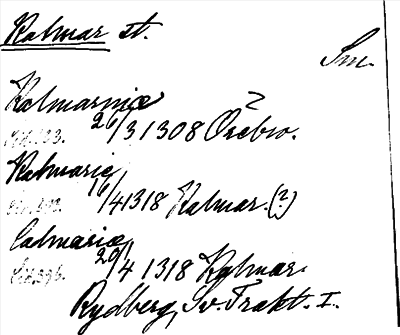 Kalmar st.
Sm.
Kalmarnie
26/3 1308 Örebro.
Kalmarie
16/4 1318 Kalmar. (?)
Calmarie
20/4 1318 Kalmar.
Rydberg, Sv. Trakt. I.